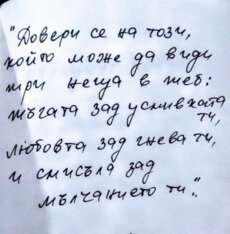 "Довери се на този,
който може да види
три неща в теб:
тъгата зад усмивката
ти,
любовта зад гнева ти,
и смисъла зад
мълчанието ти."